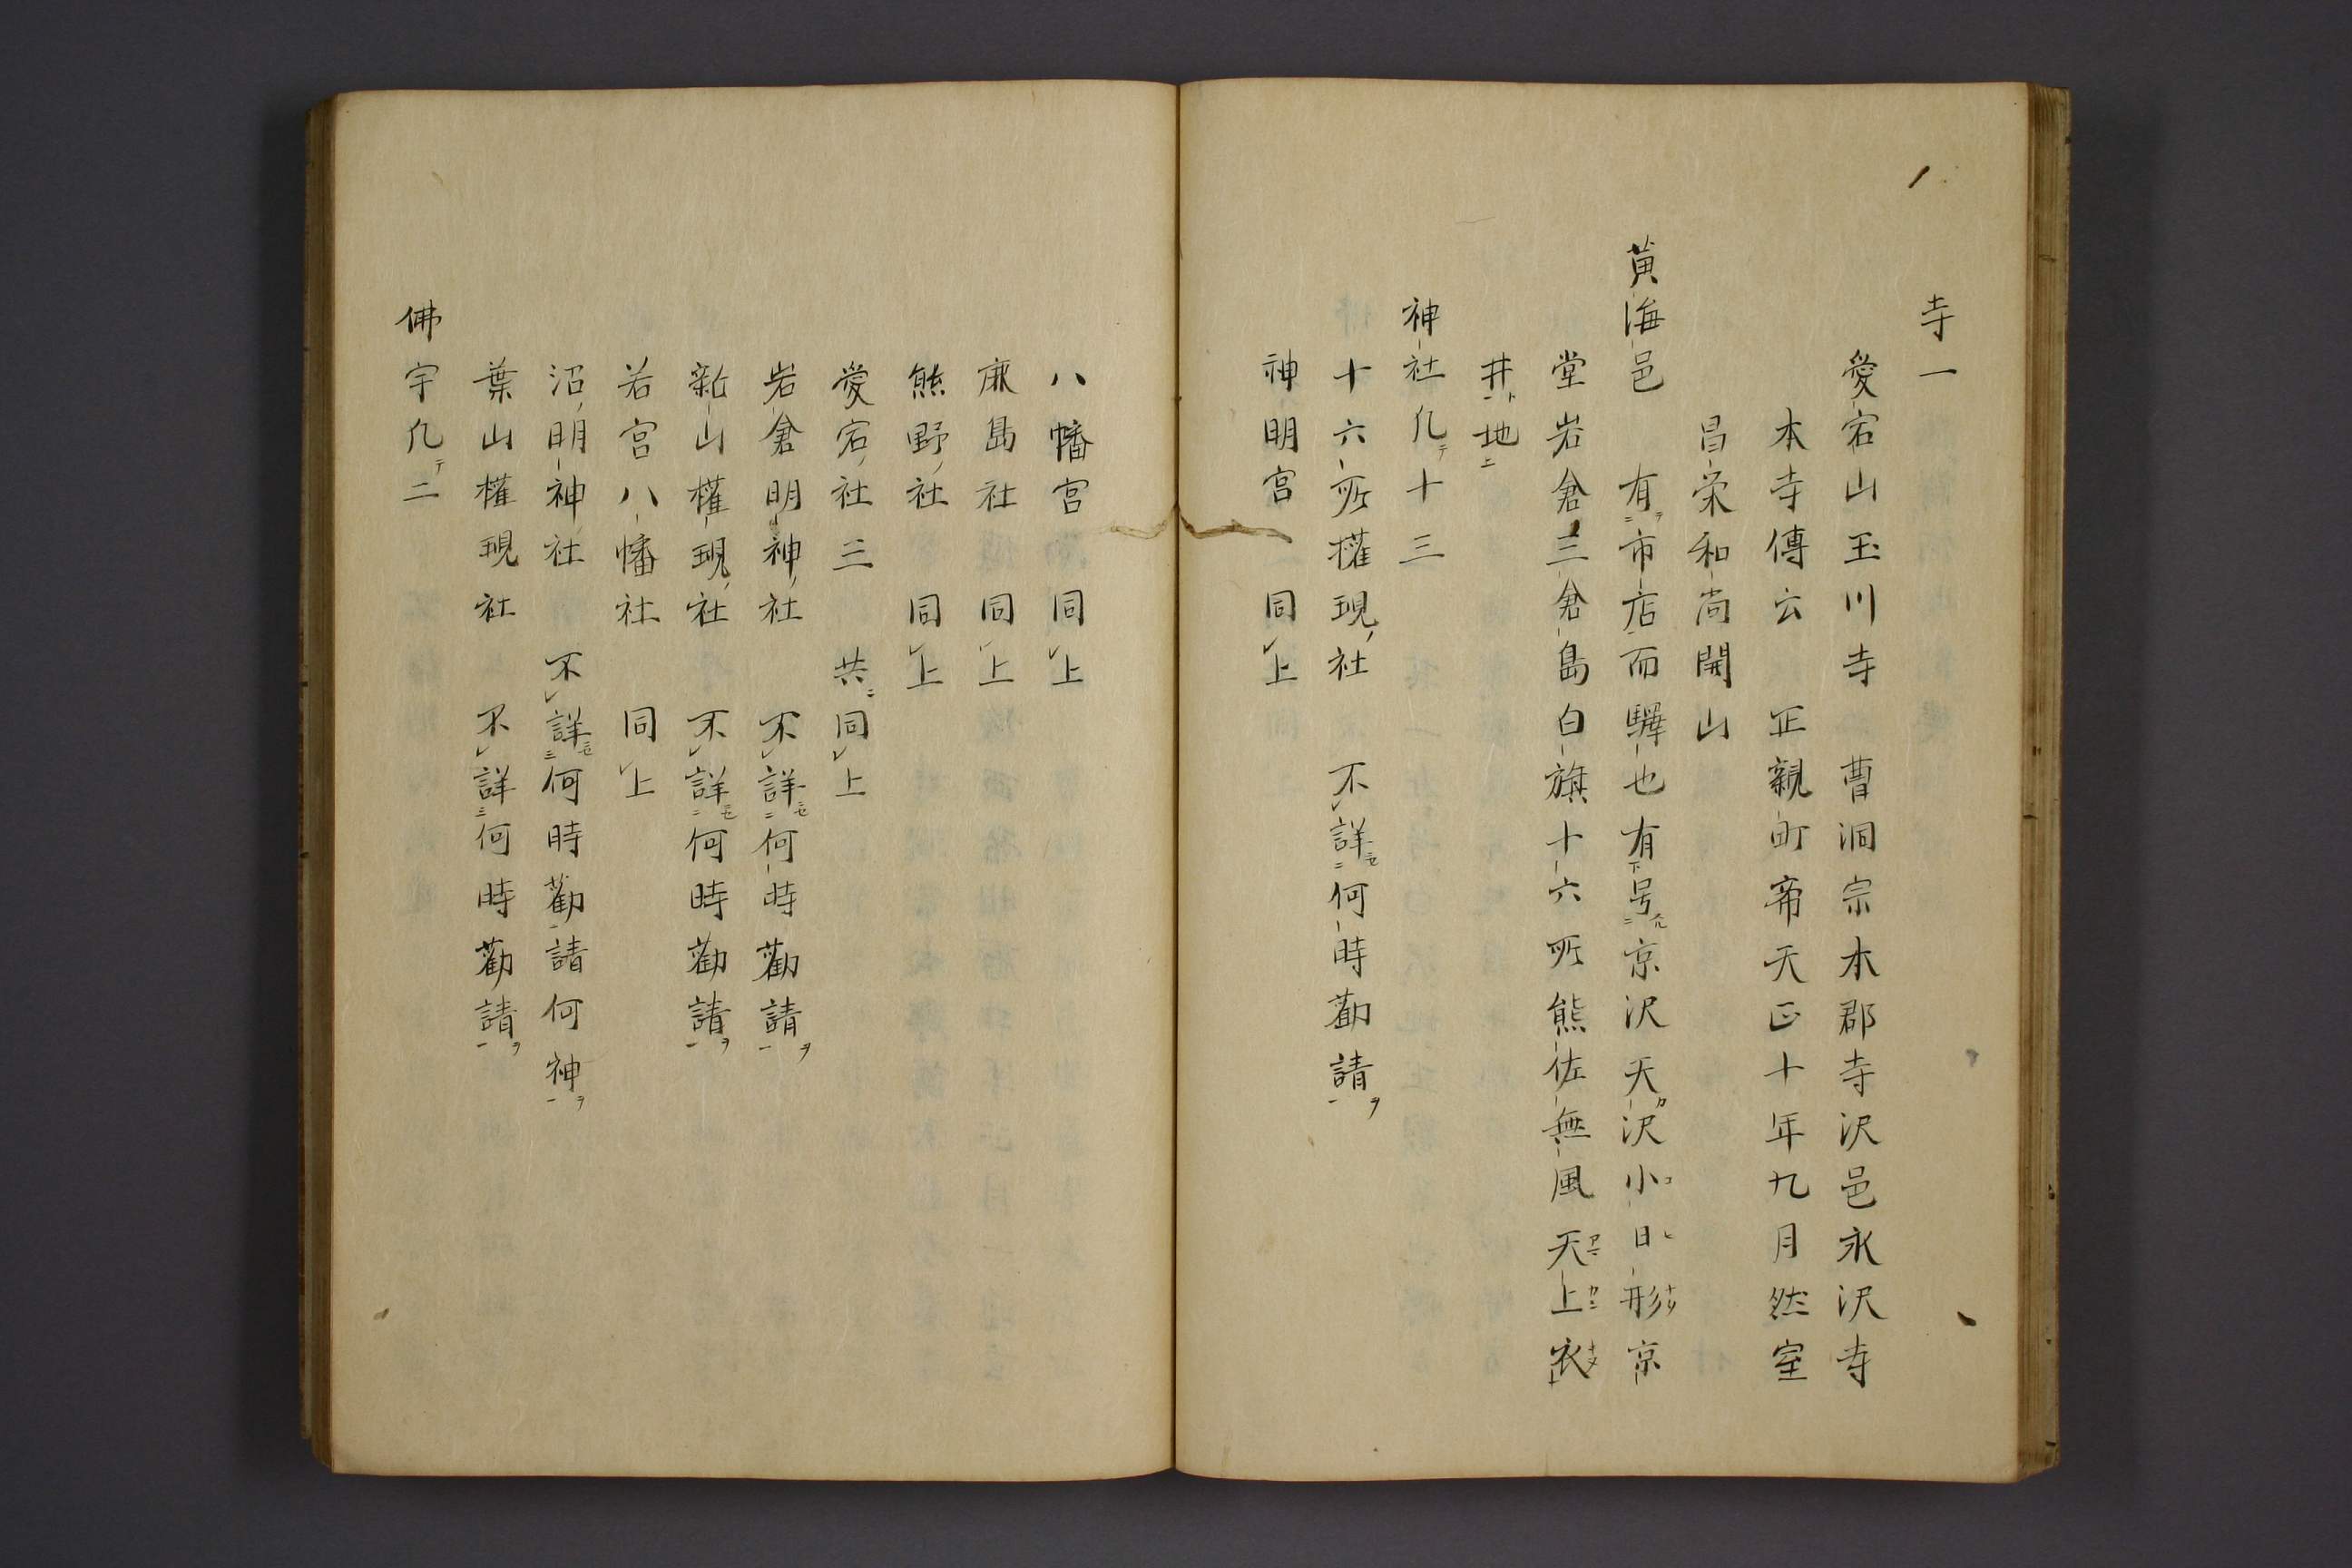 寺一
愛宕山玉川寺 曹洞宗本郡寺沢邑永沢寺
本寺傳云 正親町帝天正十年九月然室
昌栄和尚開山
黄海邑 有市店而驛也有号京沢天沢小日形京
堂岩倉三倉島白旗十六所熊佐無風天上衣
井地
神社凢十三
十六所権現社 不詳何時勧請
神明宮 同上
八幡宮 同上
鹿島社 同上
熊野社 同上
愛宕社三 共同上
岩倉明神社 不詳何時勧請
新山権現社 不詳何時勧請
若宮八幡社 同上
沼明神社 不詳何時勧請何神
葉山権現社 不詳何時勧請
佛宇凢二